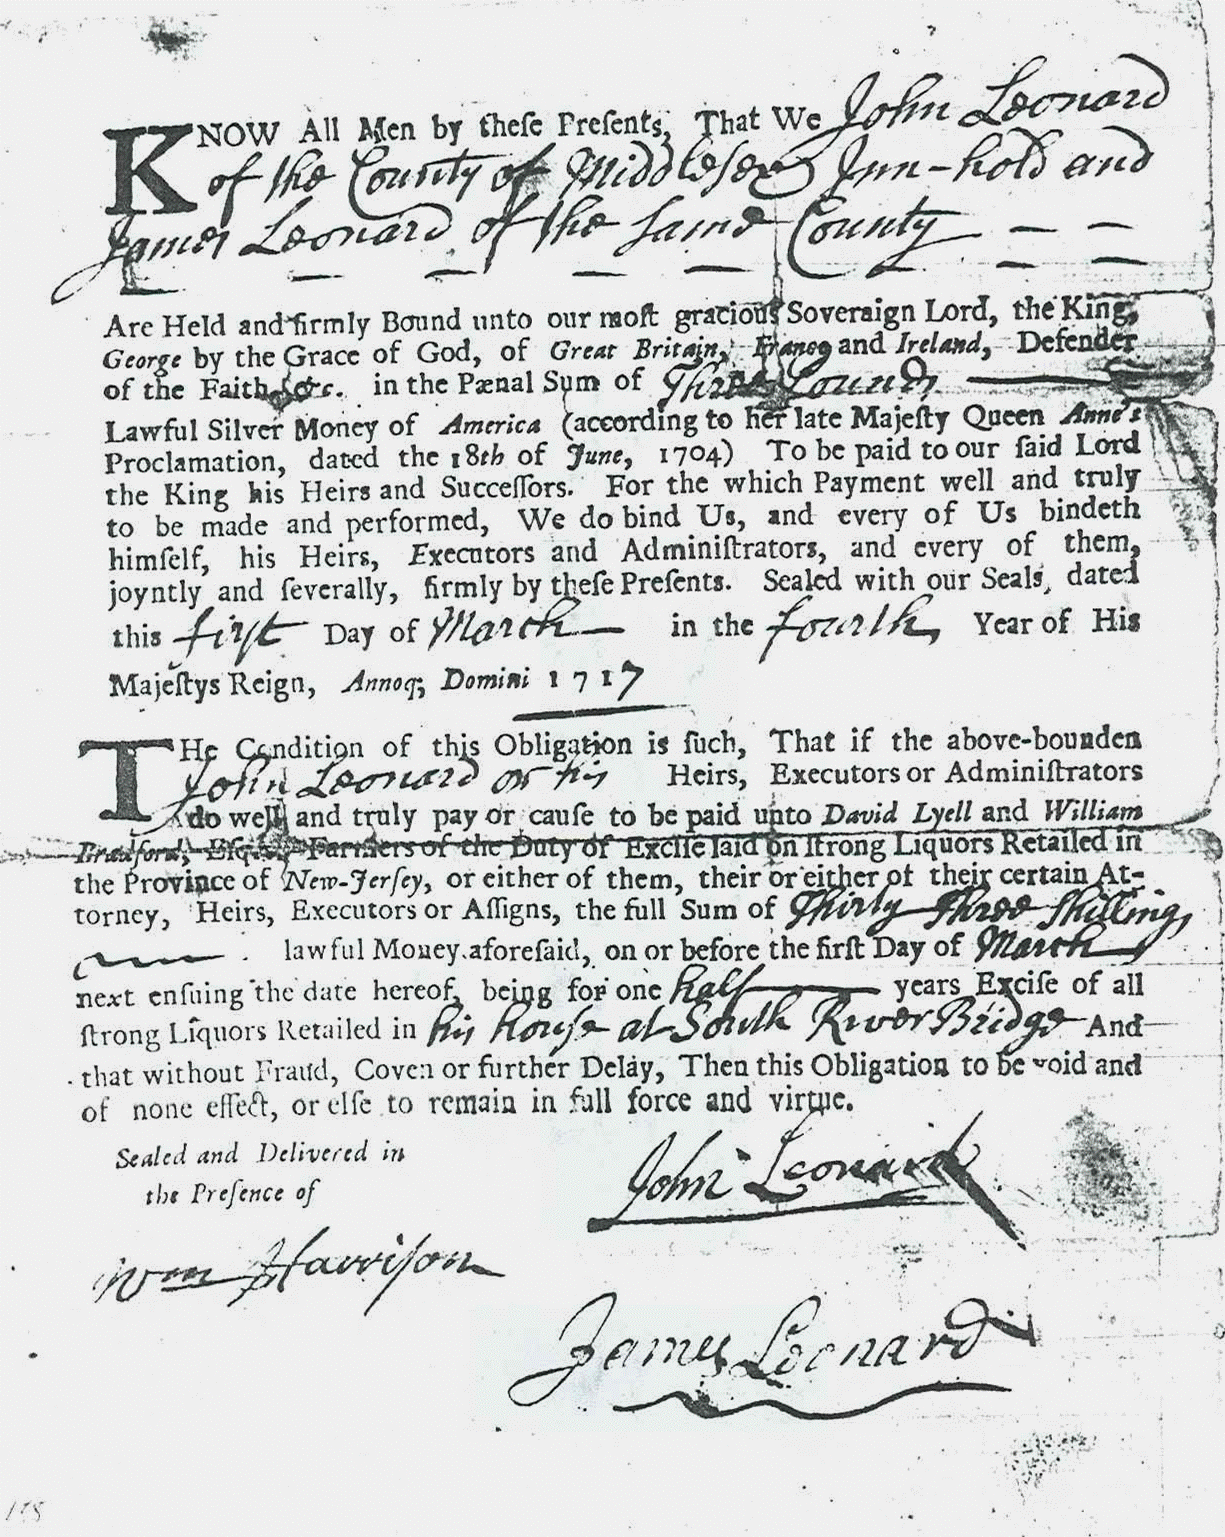 KNOW All Men by theſe Preſents, That We John Leonard
of the County of Middleſex Inn-hold and
James Leonard of the ſame County — —
— — — — — — —
Are Held and firmly Bound unto our moſt gracious Soveraign Lord, the King,
George by the Grace of God, of Great Britain, France and Ireland, Defender
of the Faith, &c. in the Pænal Sum of Three Pounds ——
Lawful Silver Money of America (according to her late Majeſty Queen Anne's
Proclamation, dated the 18th of June, 1704) To be paid to our ſaid Lord
the King his Heirs and Succeſſors. For the which Payment well and truly
to be made and performed, We do bind Us, and every of Us bindeth
himſelf, his Heirs, Executors and Adminiſtrators, and every of them,
joyntly and ſeverally, firmly by theſe Preſents. Sealed with our Seals, dated
this firſt Day of March — in the fourth, Year of His
Majeſtys Reign, Annoq; Domini 1717
THe Condition of this Obligation is ſuch, That if the above-bounden
John Leonard or his Heirs, Executors or Adminiſtrators
do well and truly pay or cauſe to be paid unto David Lyell and William
Bradford, Eſqs; Farmers of the Duty of Exciſe laid on ſtrong Liquors Retailed in
the Province of New-Jerſey, or either of them, their or either of their certain At-
torney, Heirs, Executors or Aſſigns, the full Sum of Thirty Three Shillings,
lawful Money aforeſaid, on or before the firſt Day of March
next enſuing the date hereof, being for one half —— years Exciſe of all
ſtrong Liquors Retailed in his houſe at South River Bridge And
that without Fraud, Coven or further Delay, Then this Obligation to be void and
of none effect, or elſe to remain in full force and virtue.
Sealed and Delivered in
the Preſence of
John Leonard
Wm Harriſon
James Leonard
118